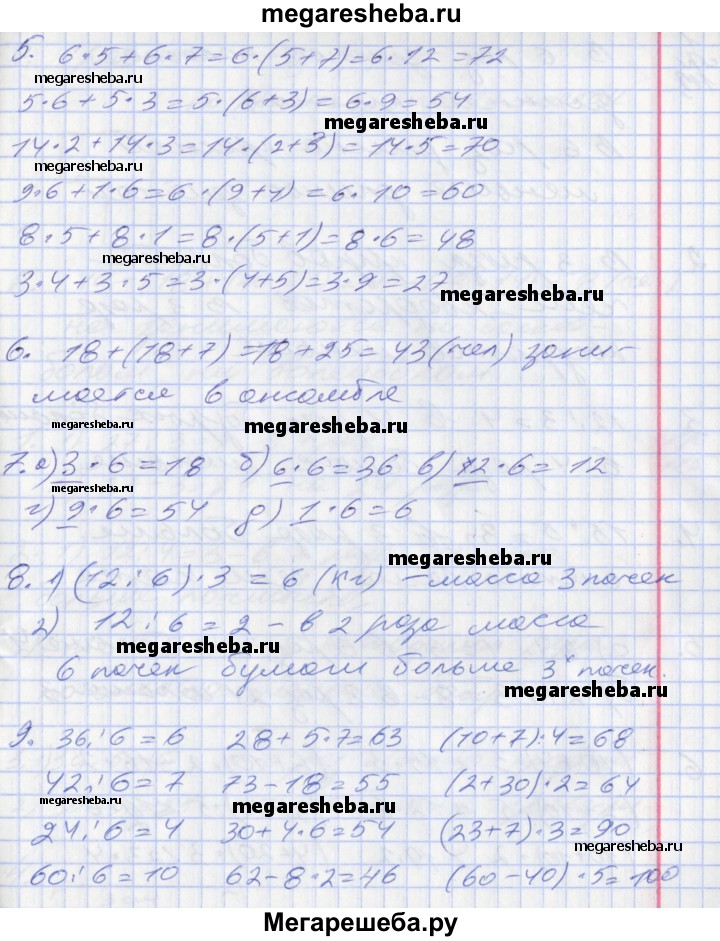 megaresheba.ru
5. 6·5+6·7=6·(5+7)=6·12=72
megaresheba.ru
5·6+5·3=5·(6+3)=6·9=54
megaresheba.ru
14·2+14·3=14·(2+3)=14·5=70
megaresheba.ru
9·6+1·6=6·(9+1)=6·10=60
8·5+8·1=8·(5+1)=8·6=48
megaresheba.ru
3·4+3·5=3·(4+5)=3·9=27
megaresheba.ru
6. 18+(18+7)=18+25=43(чел) зани-
мается в ансамбле
megaresheba.ru megaresheba.ru
7. а) 3·6=18 б) 6·6=36 в) 12·6=12
megaresheba.ru
г) 9·6=54 д) 1·6=6
megaresheba.ru
8. 1) (12:6)·3=6 (кг) – масса 3 пачек
2) 12:6=2 – в 2 раза масса
megaresheba.ru
6 пачек бумаги больше 3х пачек.
megaresheba.ru
9. 36:6=6 28+5·7=63 (10+7)·4=68
42:6=7 73-18=55 (2+30)·2=64
megaresheba.ru megaresheba.ru
24:6=4 30+4·6=54 (23+7)·3=90
megaresheba.ru
60:6=10 62-8·2=46 (60-40)·5=100
Мегарешеба.ру